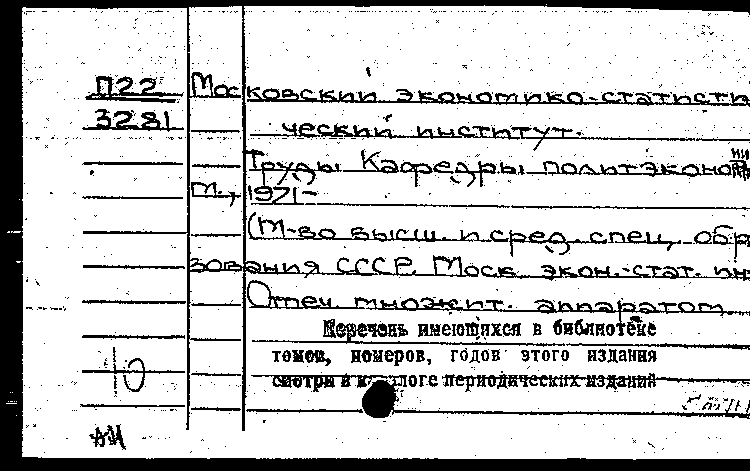 П22 Московский экономико-статисти
3281 ческий институт.
Труды Кафедры политэконом
М., 1971-
(М-во высш. и сред. спец. обр
зования СССР. Моск. экон.-стат. ин
Отпеч. множит. аппаратом
Перечень имеющихся в библиотеке
томов, номеров, годов этого издания
смотри в каталоге периодических изданий
10